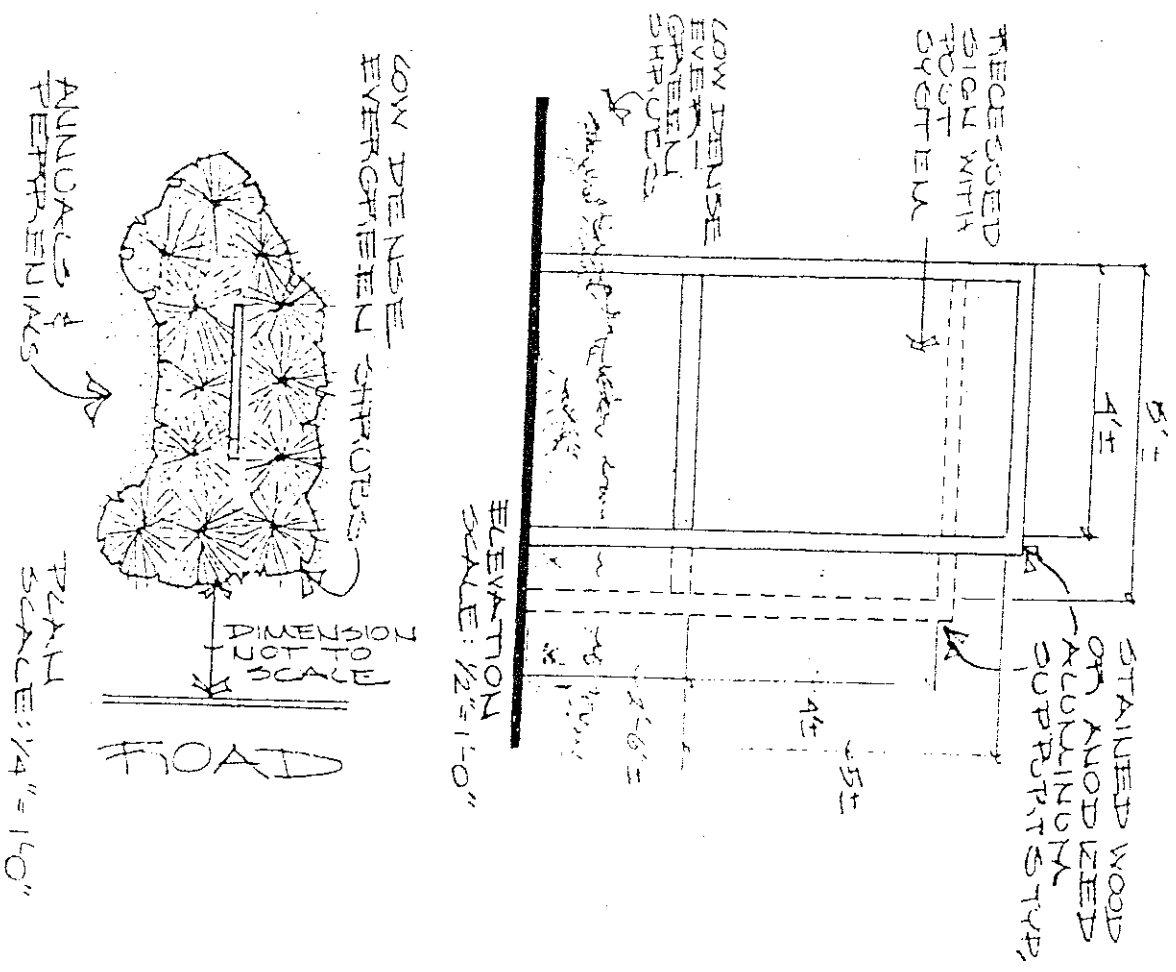 RECESSED
SIGN WITH
POST
SYSTEM
LOW DENSE
EVER-
GREEN
SHRUBS
5'±
4'±
STAINED WOOD
OR ANODIZED
ALUMINUM
SUPPORTS TYP.
2'-6"±
4'±
5±
ELEVATION
SCALE: 1/2"=1'-0"
LOW DENSE
EVERGREEN SHRUBS
ANNUALS &
PERRENIALS
DIMENSION
NOT TO
SCALE
ROAD
PLAN
SCALE: 1/4"=1'-0"